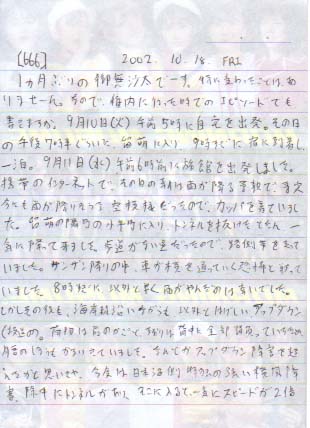 [666] 2002. 10. 18. FRI
1ヵ月ぶりの御無沙汰でーす。特に変わったことは、あ
りませーん。なので、稚内に行った時のエピソードでも
書きますか。9月10日(火)午前5時に自宅を出発。その日
の午後7時半ぐらいに、留萌に入り、9時すぎに宿に到着し、
一泊。9月11日(水)午前6時前に旅館を出発しました。
携帯のインターネットで、その日の朝は雨が降る予報で、
今にも雨が降りそうな空模様だったので、カッパを着ていまし
た。留萌の隣町の小平町に入り、トンネルを抜けたとたん、一
気に降って来ました。歩道がない道だったので、路側帯を走って
いました。ザンザン降りの中、車が横を通っていく恐怖と戦って
いました。8時頃に、以外と早く雨がやんだのは幸いでした。
しかしその後も、海岸線沿いながらも以外とはげしいアップダウン
の 荷物は前のかごと、残りは背中に全部背負っていたため
きいていました。なんとかアップダウン障害を越
えたかと思いきや、今度は日本海側特有の強い横風障
害。途中にトンネルがあり、そこに入ると、一気にスピードが2倍